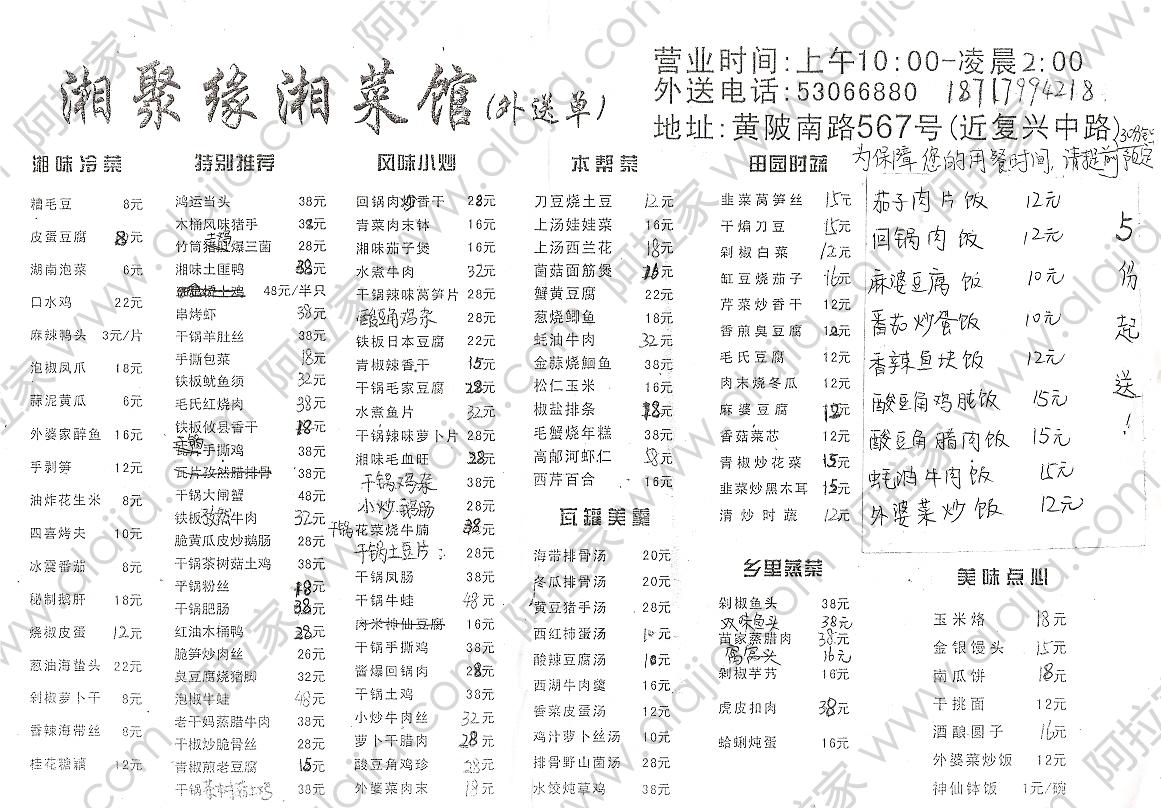 湘聚缘湘菜馆(外送单)
营业时间:上午10:00-凌晨2:00
外送电话:53066880 18717994218
地址:黄陂南路567号(近复兴中路)
为保障您的用餐时间,请提前30分钟预定
湘味冷菜
糟毛豆 8元
皮蛋豆腐 8元
湖南泡菜 6元
口水鸡 22元
麻辣鸭头 3元/片
泡椒凤爪 18元
蒜泥黄瓜 6元
外婆家醉鱼 16元
手剥笋 12元
油炸花生米 8元
四喜烤夫 10元
冰震番茄 8元
秘制鹅肝 18元
烧椒皮蛋 12元
葱油海蛰头 22元
剁椒萝卜干 8元
香辣海带丝 8元
桂花糖藕 12元
特别推荐
鸿运当头 38元
木桶风味猪手 32元
竹筒土鸡爆三菌 28元
湘味土匪鸭 38元
土鸡 48元/半只
串烤虾 38元
干锅羊肚丝 38元
手撕包菜 18元
铁板鱿鱼须 32元
毛氏红烧肉 38元
铁板攸县香干 18元
手撕鸡 38元
瓦片孜然腊排骨 38元
干锅大闸蟹 48元
铁板孜然牛肉 32元
脆黄瓜皮炒鹅肠 28元
干锅茶树菇土鸡 38元
平锅粉丝 18元
干锅肥肠 38元
红油木桶鸭 28元
脆笋炒肉丝 26元
臭豆腐烧猪脚 32元
泡椒牛蛙 48元
老干妈蒸腊牛肉 38元
干椒炒脆骨丝 28元
青椒煎老豆腐 15元
干锅茶树菇土鸡 38元
风味小炒
回锅肉炒香干 28元
青菜肉末钵 16元
湘味茄子煲 16元
水煮牛肉 32元
干锅辣味莴笋片 28元
酸豆角鸡杂 28元
铁板日本豆腐 22元
青椒辣香干 15元
干锅毛家豆腐 28元
水煮鱼片 32元
干锅辣味萝卜片 28元
湘味毛血旺 28元
干锅鸡杂 38元
小炒鹅肠 28元
干锅花菜烧牛腩 38元
干锅土豆片 28元
干锅凤肠 38元
干锅牛蛙 48元
肉米神仙豆腐 16元
干锅手撕鸡 38元
酱爆回锅肉 28元
干锅土鸡 38元
小炒牛肉丝 32元
萝卜干腊肉 28元
酸豆角鸡珍 28元
外婆菜肉末 18元
本帮菜
刀豆烧土豆 12元
上汤娃娃菜 16元
上汤西兰花 18元
菌菇面筋煲 16元
蟹黄豆腐 22元
葱烧鲫鱼 18元
蚝油牛肉 32元
金蒜烧鮰鱼 38元
松仁玉米 16元
椒盐排条 28元
毛蟹烧年糕 38元
高邮河虾仁 58元
西芹百合 16元
瓦罐美羹
海带排骨汤 20元
冬瓜排骨汤 20元
黄豆猪手汤 28元
西红柿蛋汤 10元
酸辣豆腐汤 10元
西湖牛肉羹 16元
香菜皮蛋汤 12元
鸡汁萝卜丝汤 10元
排骨野山菌汤 28元
水饺炖草鸡 38元
田园时蔬
韭菜莴笋丝 15元
干煸刀豆 15元
剁椒白菜 12元
缸豆烧茄子 16元
芹菜炒香干 12元
香煎臭豆腐 12元
毛氏豆腐 12元
肉末烧冬瓜 12元
麻婆豆腐 12元
香菇菜芯 12元
青椒炒花菜 15元
韭菜炒黑木耳 15元
清炒时蔬 12元
乡里蒸菜
剁椒鱼头 38元
双味鱼头 38元
苗家蒸腊肉 38元
窝窝头 16元
剁椒芋艿 16元
虎皮扣肉 38元
蛤蜊炖蛋 16元
茄子肉片饭 12元
回锅肉饭 12元
麻婆豆腐饭 10元
番茄炒蛋饭 10元
香辣鱼块饭 12元
酸豆角鸡肫饭 15元
酸豆角腊肉饭 15元
蚝油牛肉饭 15元
外婆菜炒饭 12元
5份起送!
美味点心
玉米烙 18元
金银馒头 15元
南瓜饼 18元
干挑面 12元
酒酿圆子 16元
外婆菜炒饭 12元
神仙钵饭 1元/碗
阿拉家 www.alajia.com